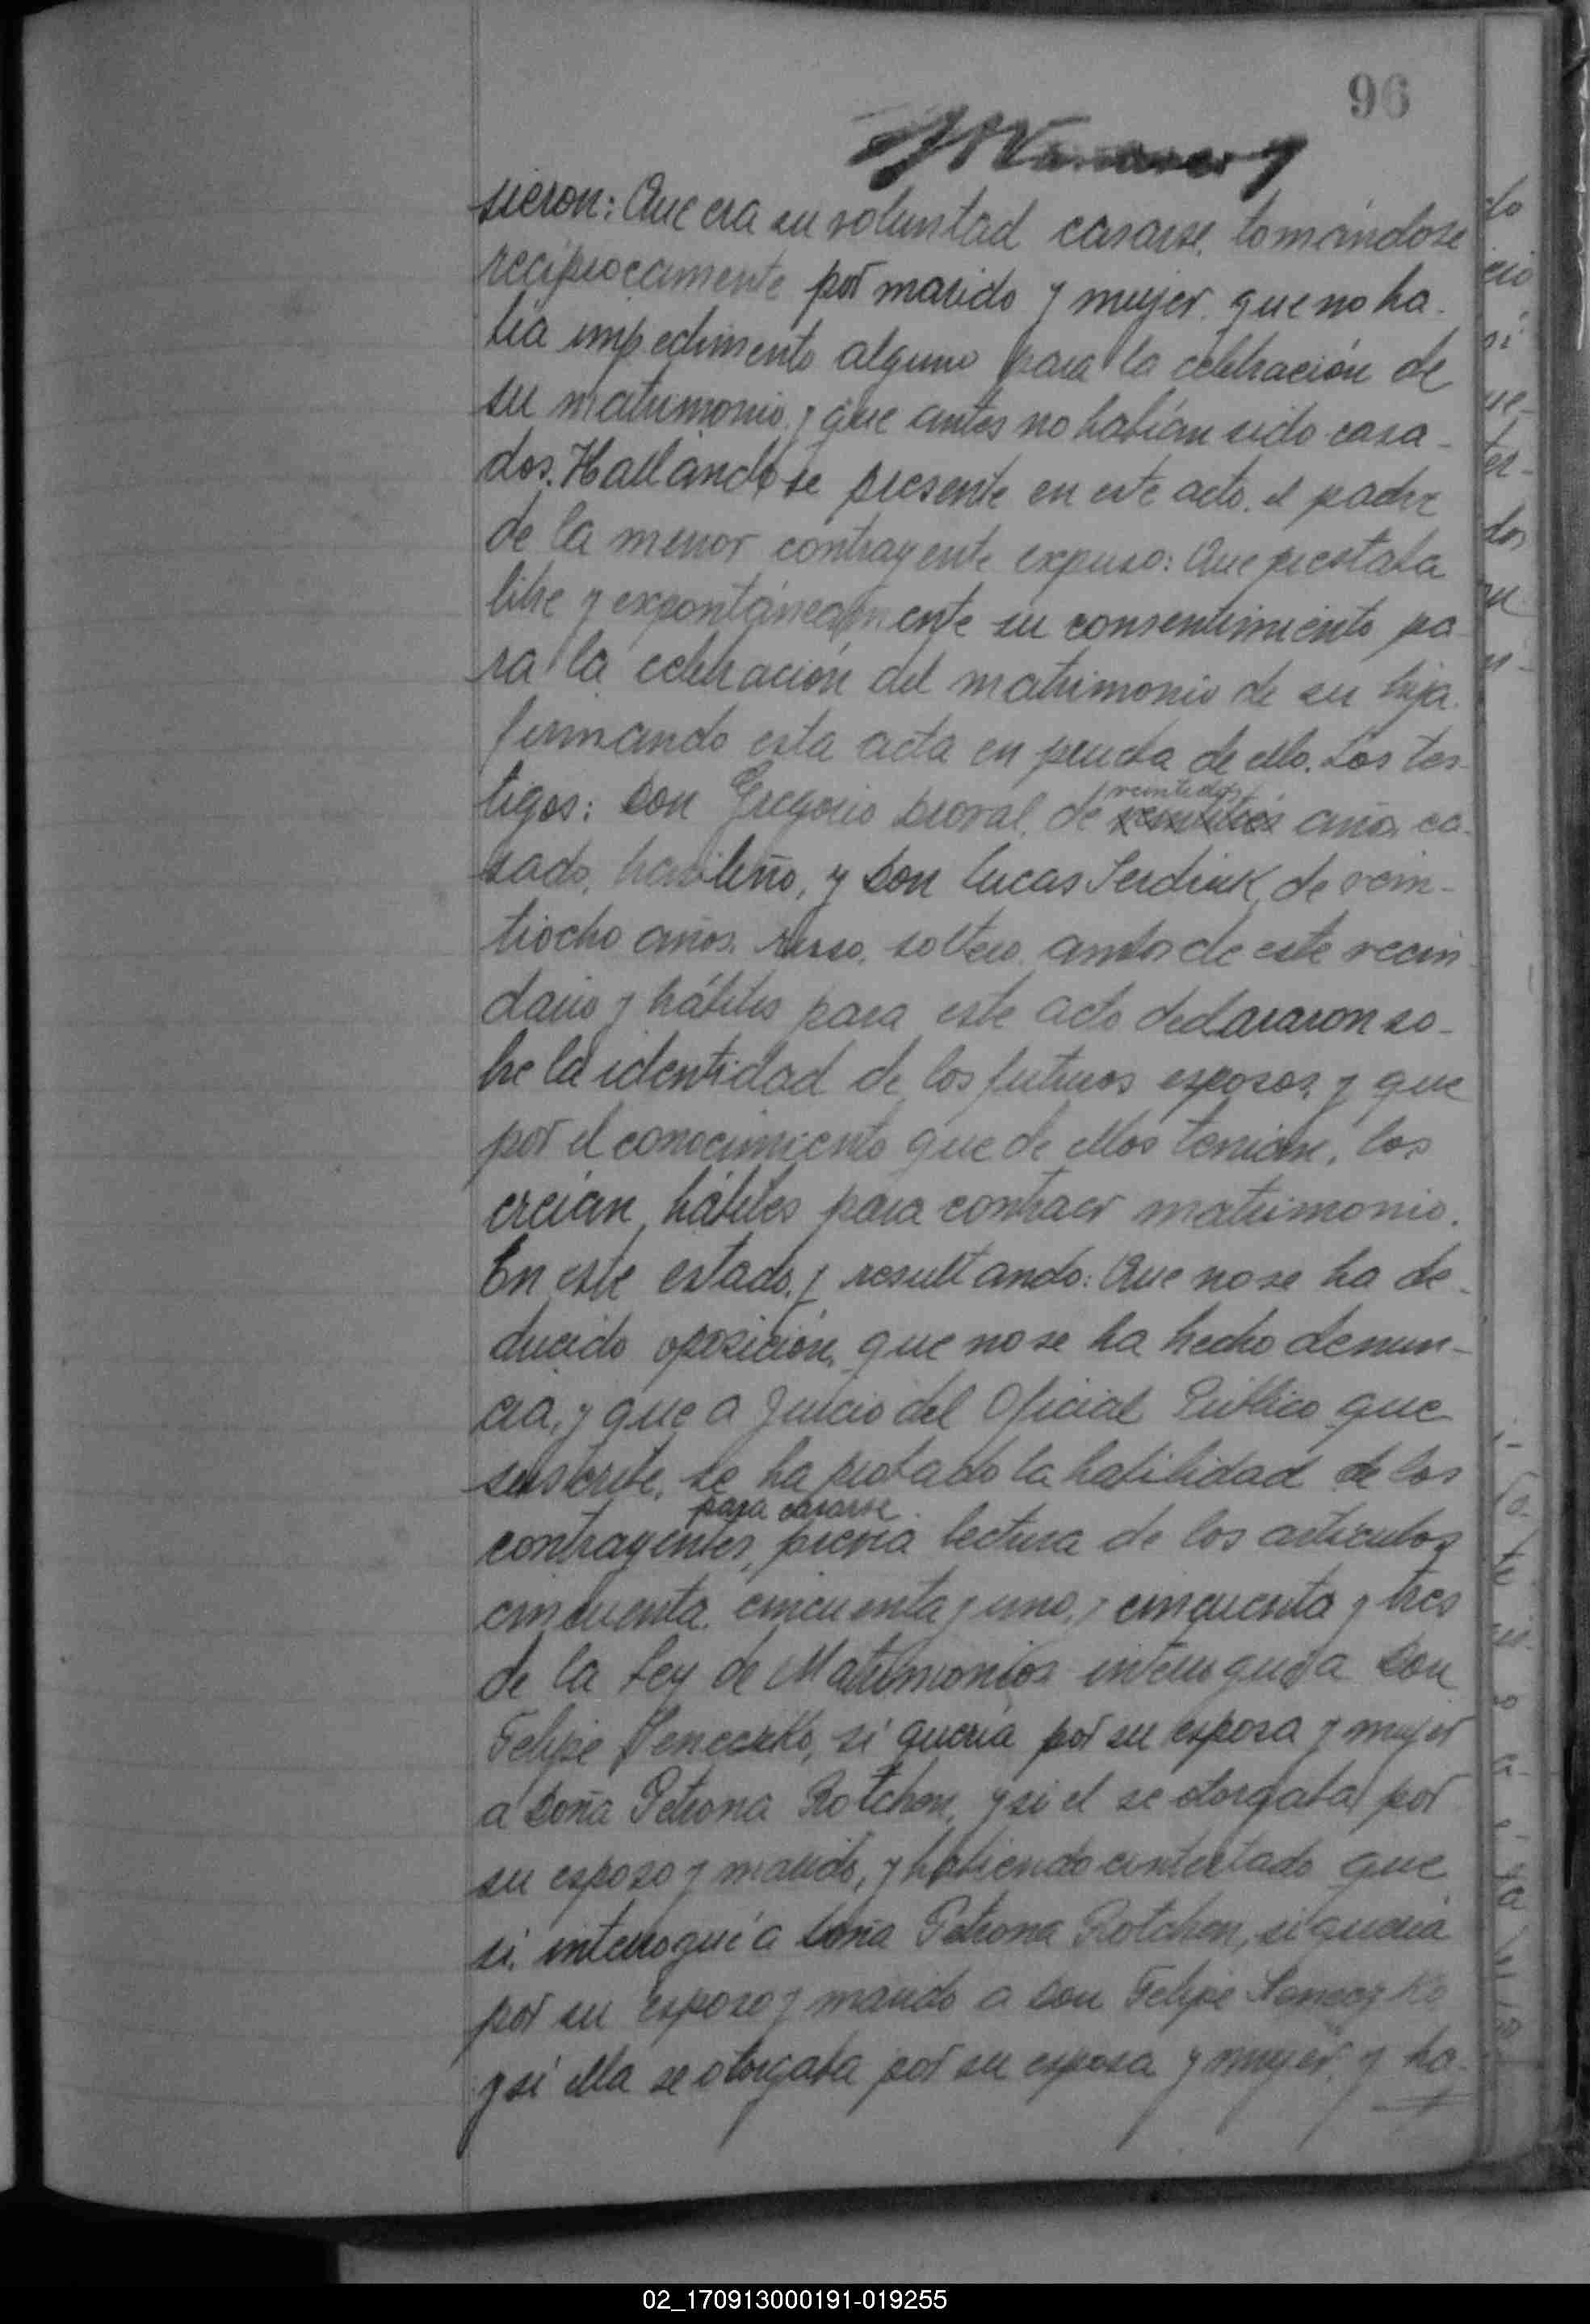 96
sieron: Que era su voluntad casarse, tomándose
recíprocamente por marido y mujer, que no ha-
bía impedimento alguno para la celebración de
su matrimonio, y que antes no habían sido casa-
dos. Hallándose presente en este acto, el padre
de la menor contrayente expuso: Que prestaba
libre y expontáneamente su consentimiento pa-
ra la celebración del matrimonio de su hija,
firmando esta acta en prueba de ello. Los tes-
veintidos
tigos: Don Gregorio de veintitres años, ca-
sado, brasileño, y Don Lucas Serdiuk, de vein-
tiocho años, ruso, soltero, ambos de este vecin-
dario y hábiles para este acto declararon so-
bre la identidad de los futuros esposos, y que
por el conocimiento que de ellos tenían, los
creían hábiles para contraer matrimonio.
En este estado, y resultando: Que no se ha de-
ducido oposición, que no se ha hecho denun-
cia, y que a juicio del Oficial Público que
suscribe, se ha probado la habilidad de los
para casarse
contrayentes, previa lectura de los artículos
cincuenta, cincuenta y uno, y cincuenta y tres
de la Ley de Matrimonios interrogué a Don
Felipe si quería por su esposa y mujer
a Doña Petrona Rotchen, y si el se otorgaba por
su esposo y marido, y habiendo contestado que
si, interrogué a Doña Petrona Rotchen, si quería
por su esposo y marido a Don Felipe
y si ella se otorgaba por su esposa y mujer, y ha-
02_170913000191-019255